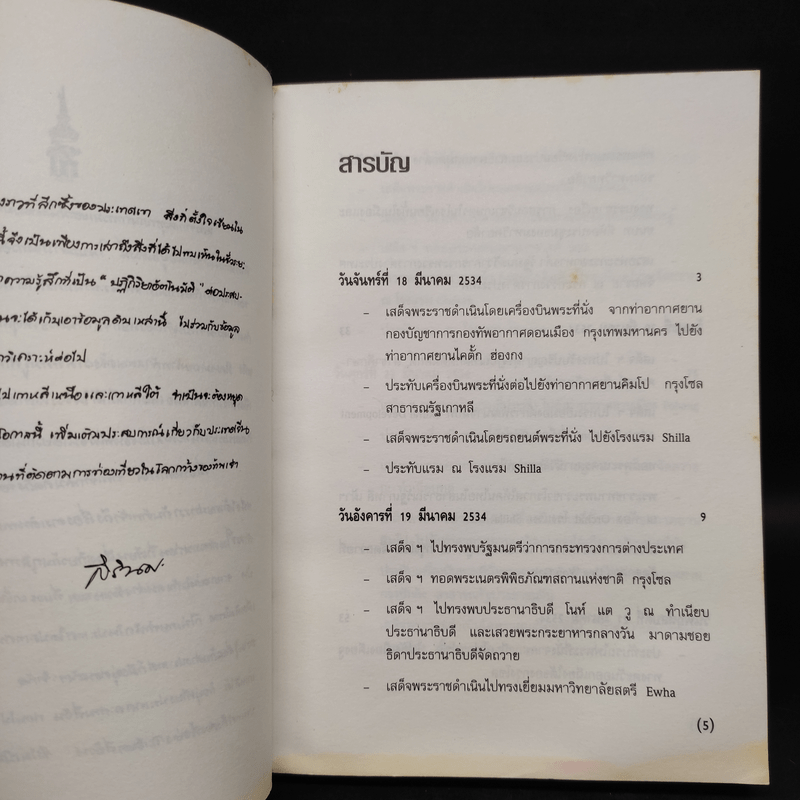 งราวที่ลึกซึ้งของประเทศเขา สิ่งที่ตั้งใจเขียนใน
นี้จึงเป็นเพียงการเล่าถึงสิ่งที่ได้ไปพบเห็นในช่วงระยะ
ความรู้สึกที่เป็น "ปฏิกิริยาอัตโนมัติ" ต่อประสบ-
นจะได้เก็บเอาข้อมูลดิบเหล่านี้ ไปร่วมกับข้อมูล
วิเคราะห์ต่อไป
ไปเกาหลีเหนือและเกาหลีใต้ จำเป็นจะต้องหยุด
โอกาสนี้ เพิ่มเติมประสบการณ์เกี่ยวกับประเทศจีน
านที่ติดตามการท่องเที่ยวในโลกกว้างของข้าพเจ้า
สิรินธร
สารบัญ
วันจันทร์ที่ 18 มีนาคม 2534 3
– เสด็จพระราชดำเนินโดยเครื่องบินพระที่นั่ง จากท่าอากาศยาน
กองบัญชาการกองทัพอากาศดอนเมือง กรุงเทพมหานคร ไปยัง
ท่าอากาศยานไคตั๊ก ฮ่องกง
– ประทับเครื่องบินพระที่นั่งต่อไปยังท่าอากาศยานคิมโป กรุงโซล
สาธารณรัฐเกาหลี
– เสด็จพระราชดำเนินโดยรถยนต์พระที่นั่ง ไปยังโรงแรม Shilla
– ประทับแรม ณ โรงแรม Shilla
วันอังคารที่ 19 มีนาคม 2534 9
– เสด็จ ฯ ไปทรงพบรัฐมนตรีว่าการกระทรวงการต่างประเทศ
– เสด็จ ฯ ทอดพระเนตรพิพิธภัณฑสถานแห่งชาติ กรุงโซล
– เสด็จ ฯ ไปทรงพบประธานาธิบดี โนห์ แต วู ณ ทำเนียบ
ประธานาธิบดี และเสวยพระกระยาหารกลางวัน มาดามชอย
ธิดาประธานาธิบดีจัดถวาย
– เสด็จพระราชดำเนินไปทรงเยี่ยมมหาวิทยาลัยสตรี Ewha
(5)